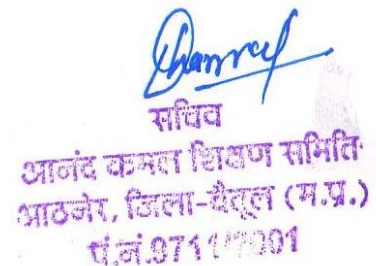 सचिव
आनंद कमल शिक्षण समिति
आठनेर, जिला-बैतूल (म.प्र.)
पं.नं.9711